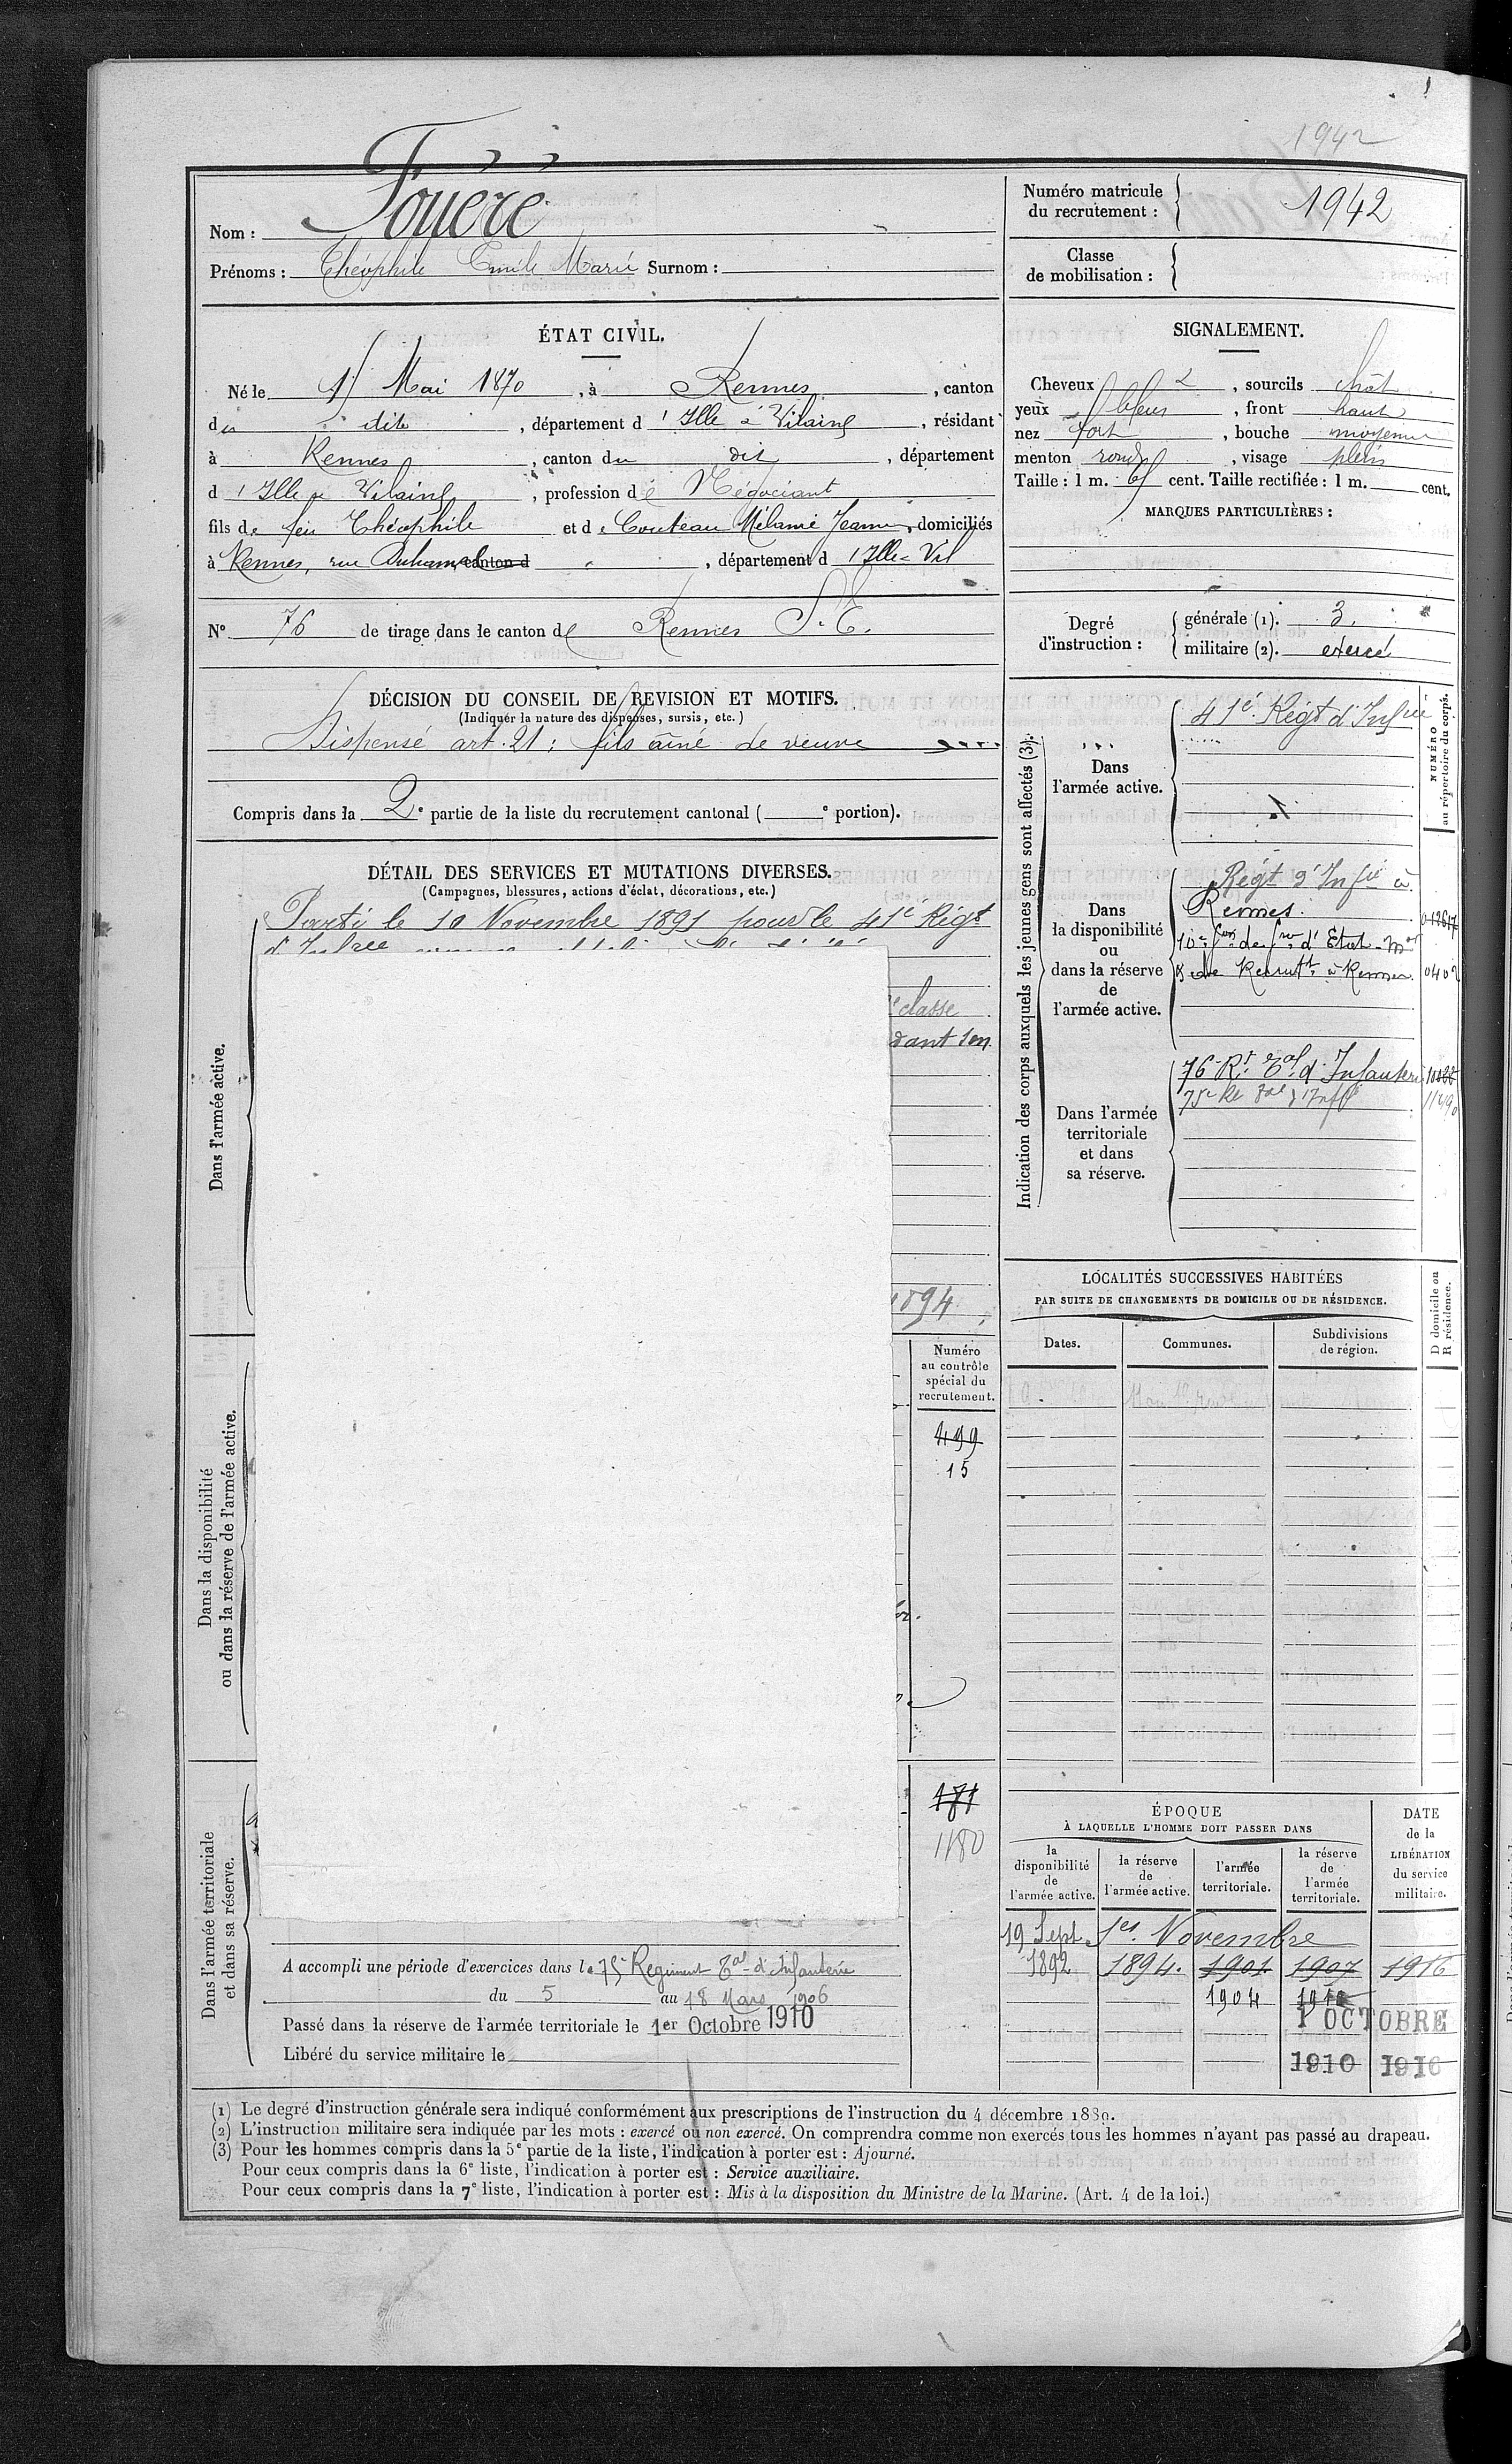 1942
Nom : Fouéré
Prénoms : Théophile Emile Marie Surnom :
Numéro matricule
du recrutement : 1942
Classe
de mobilisation :
ÉTAT CIVIL.
Né le Mai 1870, à Rennes, canton
du dit, département d'Ille & Vilaine, résidant
à Rennes, canton du dit, département
d'Ille & Vilaine, profession de Négociant
fils de feu Théophile et de Couteau Mélanie Jeanne, domiciliés
à Rennes, rue Duhamel canton d , département d'Ille-Vil
N° 76 de tirage dans le canton de Rennes S. E.
SIGNALEMENT.
Cheveux , sourcils chât
yeux bleus, front haut
nez fort, bouche moyenne
menton rond, visage plein
Taille : 1 m. cent. Taille rectifiée : 1 m. cent.
MARQUES PARTICULIÈRES :
Degré
d'instruction :
générale (1). 3.
militaire (2). exercé
DÉCISION DU CONSEIL DE REVISION ET MOTIFS.
(Indiquer la nature des dispenses, sursis, etc.)
Dispensé art. 21 : fils aîné de veuve
Compris dans la 2e partie de la liste du recrutement cantonal ( e portion).
DÉTAIL DES SERVICES ET MUTATIONS DIVERSES.
(Campagnes, blessures, actions d'éclat, décorations, etc.)
Porté le 10 Novembre 1891 pour le 41e Régt
classe
dant son
1894
Dans l'armée active.
Dans la disponibilité
ou dans la réserve de l'armée active.
Dans l'armée territoriale
et dans sa réserve.
Numéro
au contrôle
spécial du
recrutement.
499
15
171
1180
A accompli une période d'exercices dans le 75e Regiment Tal d'Infanterie
du 5 au 18 Mars 1906
Passé dans la réserve de l'armée territoriale le 1er Octobre 1910
Libéré du service militaire le
Indication des corps auxquels les jeunes gens sont affectés (3).
NUMÉRO
au répertoire du corps.
Dans
l'armée active.
41e Régt d'Infrie
Dans
la disponibilité
ou
dans la réserve
de
l'armée active.
Régt d'Infie à
Rennes.
10e Son de Sres d'Etat-Mor
& de Recrutt à Rennes.
Dans l'armée
territoriale
et dans
sa réserve.
76e Rt Tal d'Infanterie
75e Rt Tal d'Infie
LOCALITÉS SUCCESSIVES HABITÉES
PAR SUITE DE CHANGEMENTS DE DOMICILE OU DE RÉSIDENCE.
D domicile ou
R résidence.
Dates.
Communes.
Subdivisions
de région.
ÉPOQUE
À LAQUELLE L'HOMME DOIT PASSER DANS
la
disponibilité
de
l'armée active.
la réserve
de
l'armée active.
l'armée
territoriale.
la réserve
de
l'armée
territoriale.
DATE
de la
LIBÉRATION
du service
militaire.
19 Sept. 1er Novembre
1892 1894. 1901 1907 1916
1904 1910
1 OCTOBRE
1910 1916
(1) Le degré d'instruction générale sera indiqué conformément aux prescriptions de l'instruction du 4 décembre 1889.
(2) L'instruction militaire sera indiquée par les mots : exercé ou non exercé. On comprendra comme non exercés tous les hommes n'ayant pas passé au drapeau.
(3) Pour les hommes compris dans la 5e partie de la liste, l'indication à porter est : Ajourné.
Pour ceux compris dans la 6e liste, l'indication à porter est : Service auxiliaire.
Pour ceux compris dans la 7e liste, l'indication à porter est : Mis à la disposition du Ministre de la Marine. (Art. 4 de la loi.)